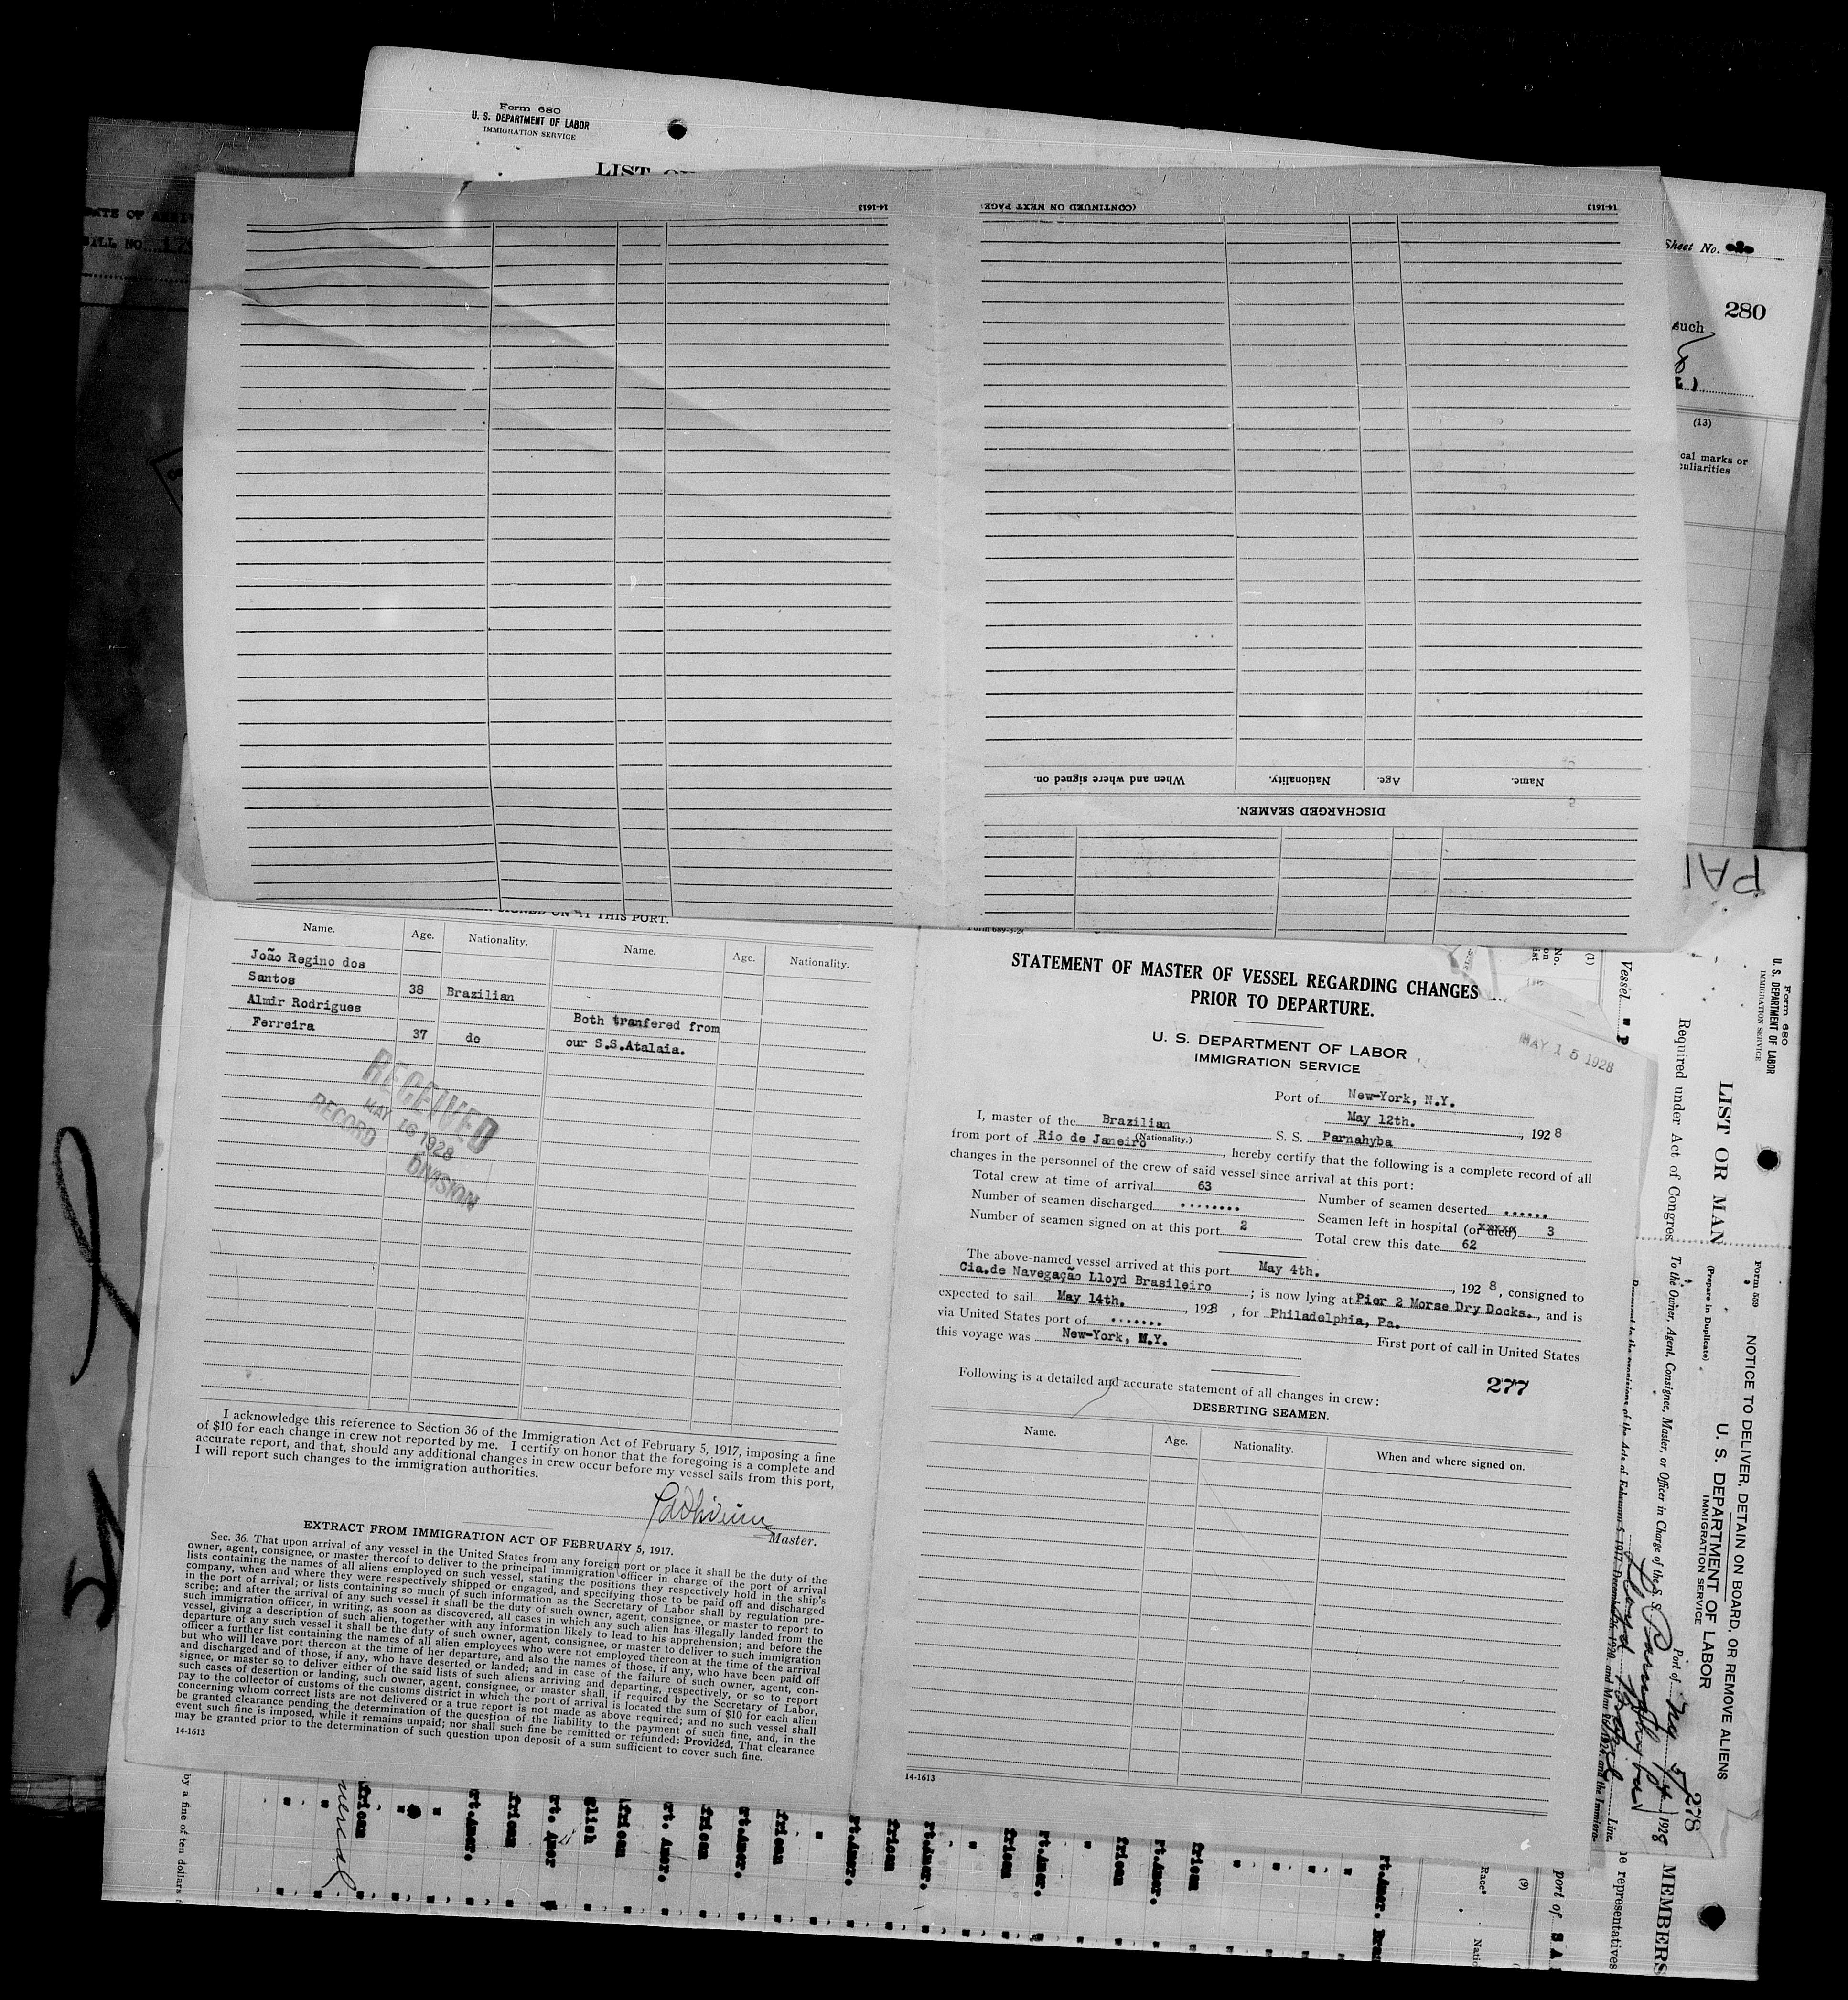 Form 680
U. S. DEPARTMENT OF LABOR
IMMIGRATION SERVICE
LIST OR
Sheet No. 2
280
such
(13)
cal marks or
culiarities
DATE OF
BILL NO.
14-1613
(CONTINUED ON NEXT PAGE
14-1613
When and where signed on.
Nationality.
Age.
Name.
DISCHARGED SEAMEN.
SIGNED ON AT THIS PORT.
Name.
Age.
Nationality.
Name.
Age.
Nationality.
João Regino dos
Santos 38 Brazilian
Almir Rodrigues
Ferreira 37 do
Both tranfered from
our S.S.Atalaia.
RECEIVED
MAY 16 1928
RECORD DIVISION
I acknowledge this reference to Section 36 of the Immigration Act of February 5, 1917, imposing a fine
of $10 for each change in crew not reported by me. I certify on honor that the foregoing is a complete and
accurate report, and that, should any additional changes in crew occur before my vessel sails from this port,
I will report such changes to the immigration authorities.
Master.
EXTRACT FROM IMMIGRATION ACT OF FEBRUARY 5, 1917.
Sec. 36. That upon arrival of any vessel in the United States from any foreign port or place it shall be the duty of the
owner, agent, consignee, or master thereof to deliver to the principal immigration officer in charge of the port of arrival
lists containing the names of all aliens employed on such vessel, stating the positions they respectively hold in the ship's
company, when and where they were respectively shipped or engaged, and specifying those to be paid off and discharged
in the port of arrival; or lists containing so much of such information as the Secretary of Labor shall by regulation pre-
scribe; and after the arrival of any such vessel it shall be the duty of such owner, agent, consignee, or master to report to
such immigration officer, in writing, as soon as discovered, all cases in which any such alien has illegally landed from the
vessel, giving a description of such alien, together with any information likely to lead to his apprehension; and before the
departure of any such vessel it shall be the duty of such owner, agent, consignee, or master to deliver to such immigration
officer a further list containing the names of all alien employees who were not employed thereon at the time of the arrival
but who will leave port thereon at the time of her departure, and also the names of those, if any, who have been paid off
and discharged and of those, if any, who have deserted or landed; and in case of the failure of such owner, agent, con-
signee, or master so to deliver either of the said lists of such aliens arriving and departing, respectively, or so to report
such cases of desertion or landing, such owner, agent, consignee, or master shall, if required by the Secretary of Labor,
pay to the collector of customs of the customs district in which the port of arrival is located the sum of $10 for each alien
concerning whom correct lists are not delivered or a true report is not made as above required; and no such vessel shall
be granted clearance pending the determination of the question of the liability to the payment of such fine, and, in the
event such fine is imposed, while it remains unpaid; nor shall such fine be remitted or refunded: Provided, That clearance
may be granted prior to the determination of such question upon deposit of a sum sufficient to cover such fine.
14-1613
STATEMENT OF MASTER OF VESSEL REGARDING CHANGES
PRIOR TO DEPARTURE.
U. S. DEPARTMENT OF LABOR
IMMIGRATION SERVICE
MAY 15 1928
Port of New-York, N.Y.
May 12th., 1928
I, master of the Brazilian S. S. Parnahyba
(Nationality.)
from port of Rio de Janeiro, hereby certify that the following is a complete record of all
changes in the personnel of the crew of said vessel since arrival at this port:
Total crew at time of arrival 63
Number of seamen discharged ........ Number of seamen deserted ......
Number of seamen signed on at this port 2 Seamen left in hospital (or died) 3
Total crew this date 62
The above-named vessel arrived at this port May 4th., 1928, consigned to
Cia.de Navegação Lloyd Brasileiro; is now lying at Pier 2 Morse Dry Docks., and is
expected to sail May 14th., 1928, for Philadelphia, Pa.
via United States port of ....... First port of call in United States
this voyage was New-York, N.Y.
277
Following is a detailed and accurate statement of all changes in crew:
DESERTING SEAMEN.
Name.
Age.
Nationality.
When and where signed on.
14-1613
Form 680
U. S. DEPARTMENT OF LABOR
IMMIGRATION SERVICE
LIST OR MAN
Required under Act of Congress
Vessel
(1)
No.
on
list
Form 559
(Prepare in Duplicate)
NOTICE TO DELIVER, DETAIN ON BOARD, OR REMOVE ALIENS
U. S. DEPARTMENT OF LABOR
IMMIGRATION SERVICE
Port of NY 5/4 1928
278
To the Owner, Agent, Consignee, Master, or Officer in Charge of the S. S. Parnahyba
Lloyd Brazil Line,
MEMBERS
he representatives
port of S.A.
(9)
Race*
by a fine of ten dollars
frican
rt.Amer.
frican
rt. Amer
glish
frican
rt. Amer.
frican
rt.Amer.
frican
rt.Amer.
frican
rt.Amer.
frican
rt.Amer.
frican
rt.Amer.
frican
rt.Amer.